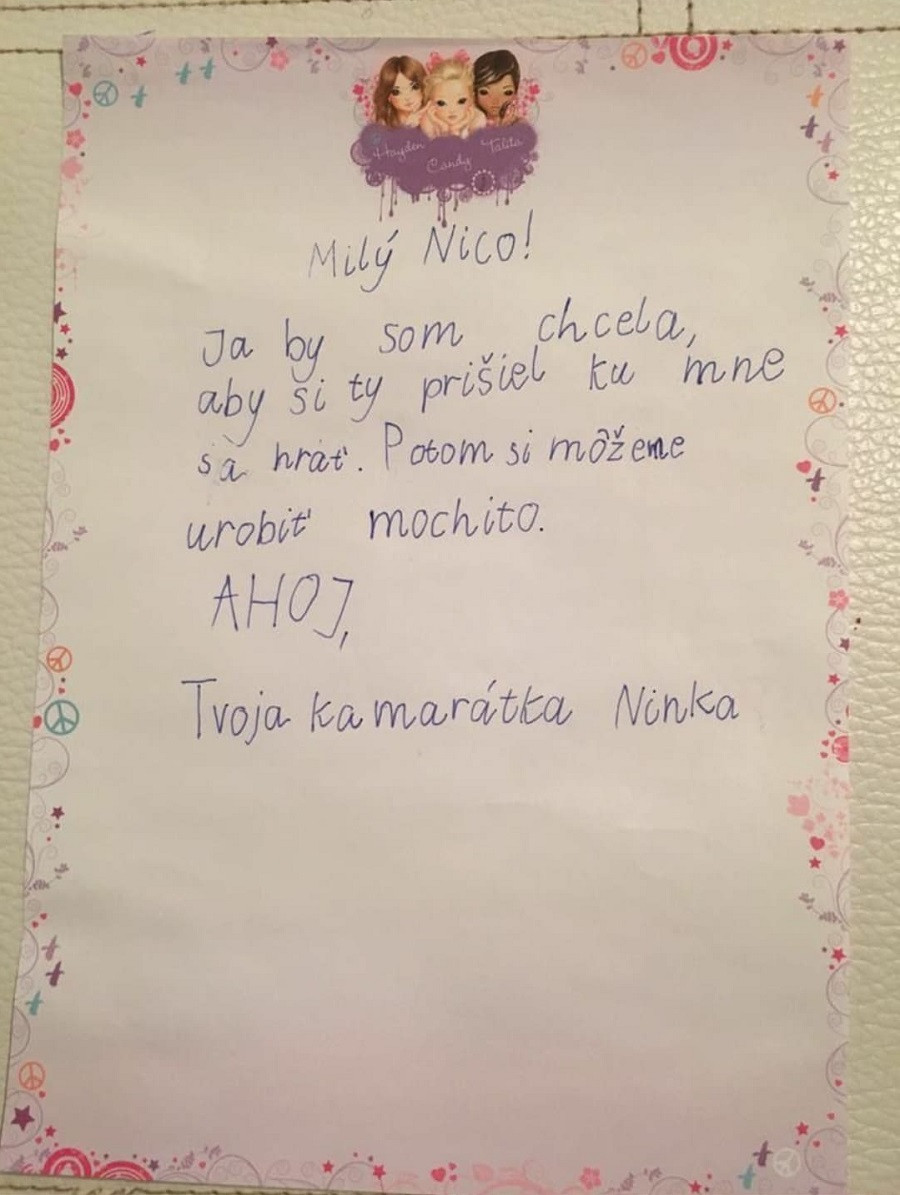 Hayden Candy Talita
Milý Nico!
Ja by som chcela,
aby si ty prišiel ku mne
sa hrať. Potom si môžeme
urobiť mochito.
AHOJ,
Tvoja kamarátka Ninka